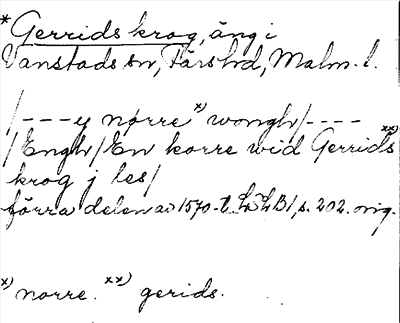 *Gerridskrog, äng i
Vanstads sn, Färs hd, Malm. l.
/---y nørre x) wongh/----
/Engh/En korre wid Gerrids xx)
krog j les/
förra delen av 1570-t. LÞLB1, s. 202. orig.
x) norre. xx) gerids.